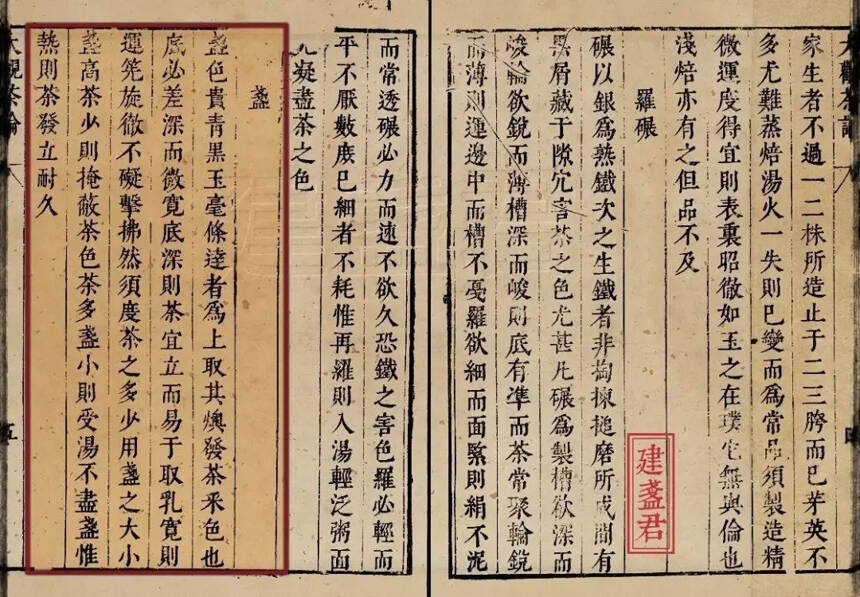 大觀茶論
家生者不過一二株所造止于二三胯而已芽英不
多尤難蒸焙湯火一失則已變而爲常品須製造精
微運度得宜則表裏昭徹如玉之在璞它無與倫也
淺焙亦有之但品不及
羅碾
建盞君
碾以銀爲熟鐵次之生鐵者非掏揀搥磨所成間有
黑屑藏于隙穴害茶之色尤甚凡碾爲製槽欲深而
峻輪欲銳而薄槽深而峻則底有準而茶常聚輪銳
而薄則運邊中而槽不戞羅欲細而面緊則絹不泥
而常透碾必力而速不欲久恐鐵之害色羅必輕而
平不厭數庶已細者不耗惟再羅則入湯輕泛粥面
光凝盡茶之色
盞
盞色貴青黑玉毫條達者爲上取其燠發茶采色也
底必差深而微寬底深則茶宜立而易于取乳寬則
運筅旋徹不礙擊拂然須度茶之多少用盞之大小
盞高茶少則掩蔽茶色茶多盞小則受湯不盡盞惟
熱則茶發立耐久
大觀茶論
五